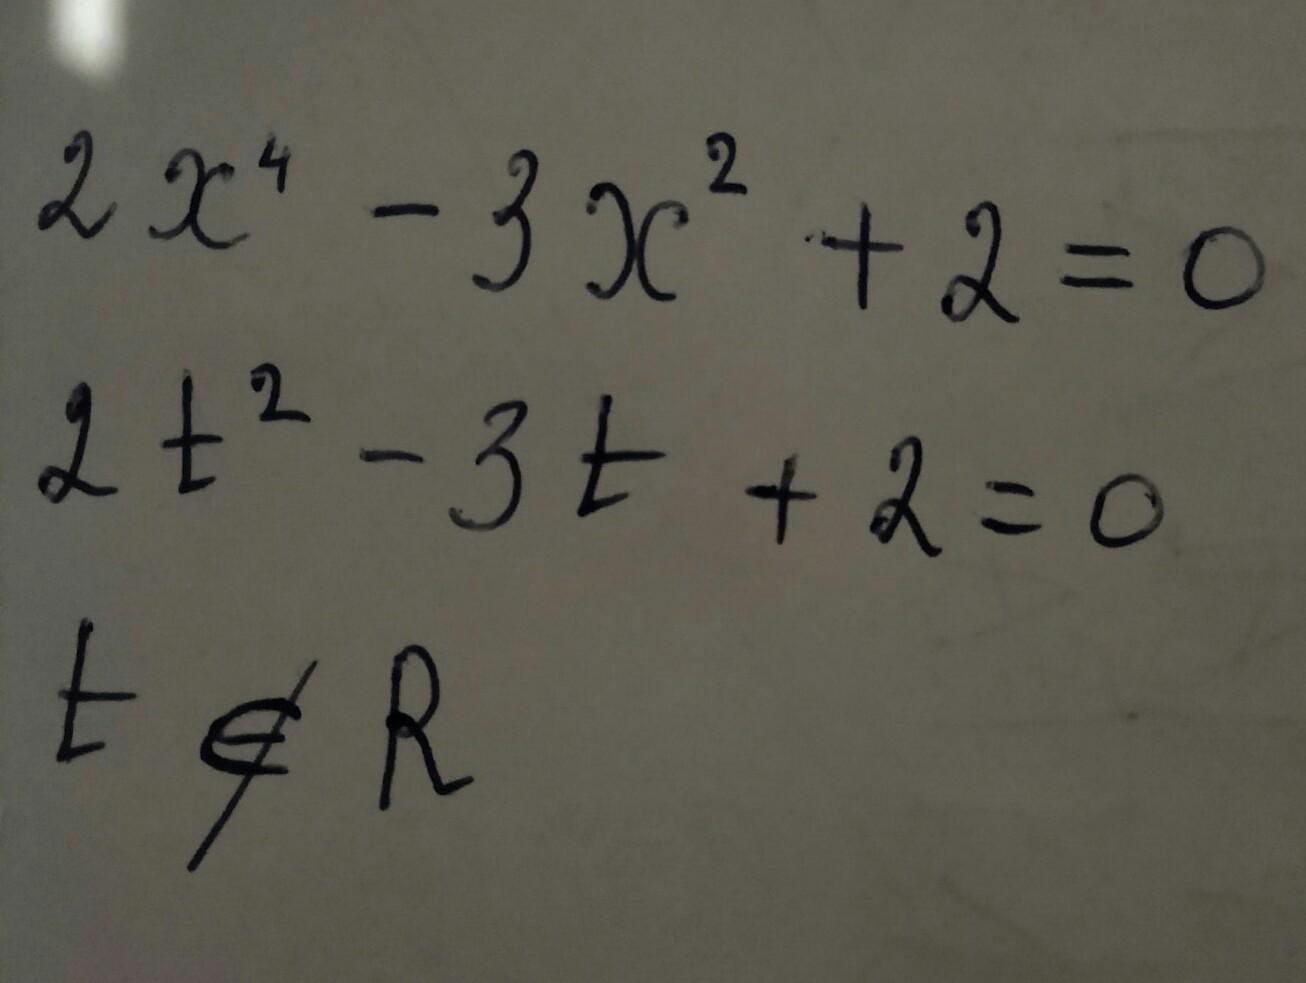 2x⁴ - 3x² + 2 = 0
2t² - 3t + 2 = 0
t ∉ R